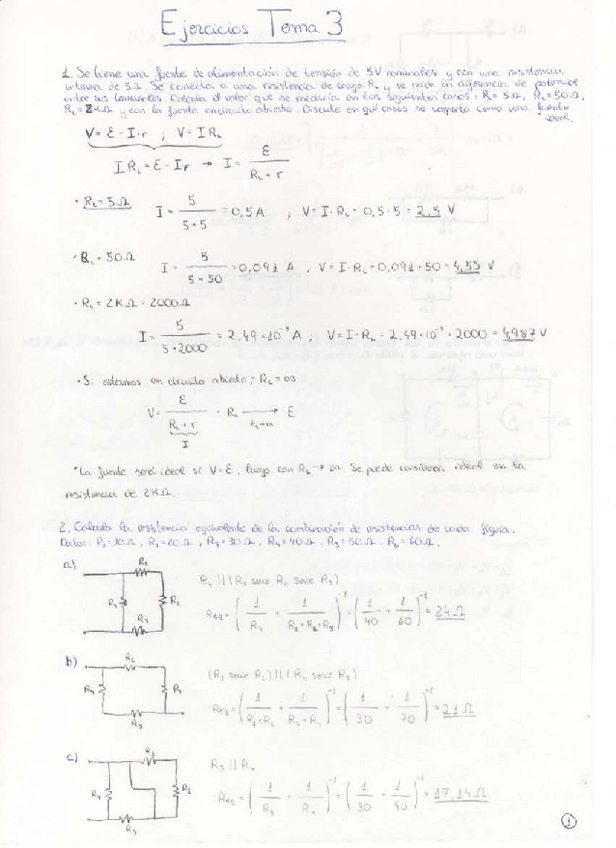 Ejercicios Tema 3
1. Se tiene una fuente de alimentación de tensión de 5V nominales y con una resistencia
interna de 5Ω. Se conecta a una resistencia de carga RL y se mide la diferencia de potencial
entre sus terminales. Calcula el valor que se mediría en los siguientes casos: RL = 5Ω, RL = 50Ω,
RL = 2KΩ y con la fuente en circuito abierto. Discute en qué casos se comporta como una fuente
ideal.
V = ε - I·r ; V = I RL
I RL = ε - Ir → I = ε / (RL + r)
· RL = 5Ω I = 5 / (5+5) = 0,5 A ; V = I·RL = 0,5·5 = 2.5 V
· RL = 50Ω I = 5 / (5+50) = 0,091 A ; V = I·RL = 0,091·50 = 4,55 V
· RL = 2KΩ = 2000Ω
I = 5 / (5+2000) = 2,49·10⁻³ A ; V = I·RL = 2,49·10⁻³·2000 = 4,987 V
· Si estamos en circuito abierto; RL = ∞
V = ε / (RL + r) · RL → ε
RL→∞
I
*La fuente será ideal si V = ε, luego con RL → ∞. Se puede considerar ideal en la
resistencia de 2KΩ.
2. Calcula la resistencia equivalente de la combinación de resistencias de cada figura.
Datos: R1 = 10Ω, R2 = 20Ω, R3 = 30Ω, R4 = 40Ω, R5 = 50Ω, R6 = 60Ω.
a)
R4 || (R1 serie R2 serie R3)
Req = (1/R4 + 1/(R1+R2+R3))⁻¹ = (1/40 + 1/60)⁻¹ = 24Ω
b)
(R1 serie R2) || (R4 serie R3)
Req = (1/(R1+R2) + 1/(R3+R4))⁻¹ = (1/30 + 1/70)⁻¹ = 21Ω
c)
R3 || R4
Req = (1/R3 + 1/R4)⁻¹ = (1/30 + 1/40)⁻¹ = 17,14Ω
1